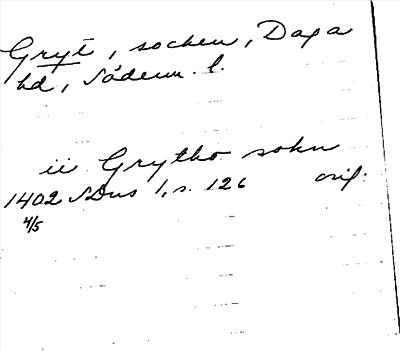 Gryt, socken, Daga
hd, Söderm. l.
ii Grytho sokn
1402 SDns 1, s. 126 orig.
4/5